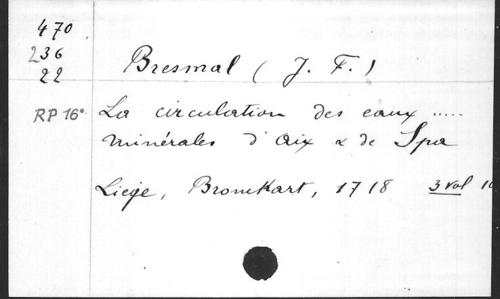 470
236
22
Bresmal (J. F.)
RP 16°
La circulation des eaux .....
minérales d'Aix & de Spa
Liege, Bronckart, 1718 3 vol